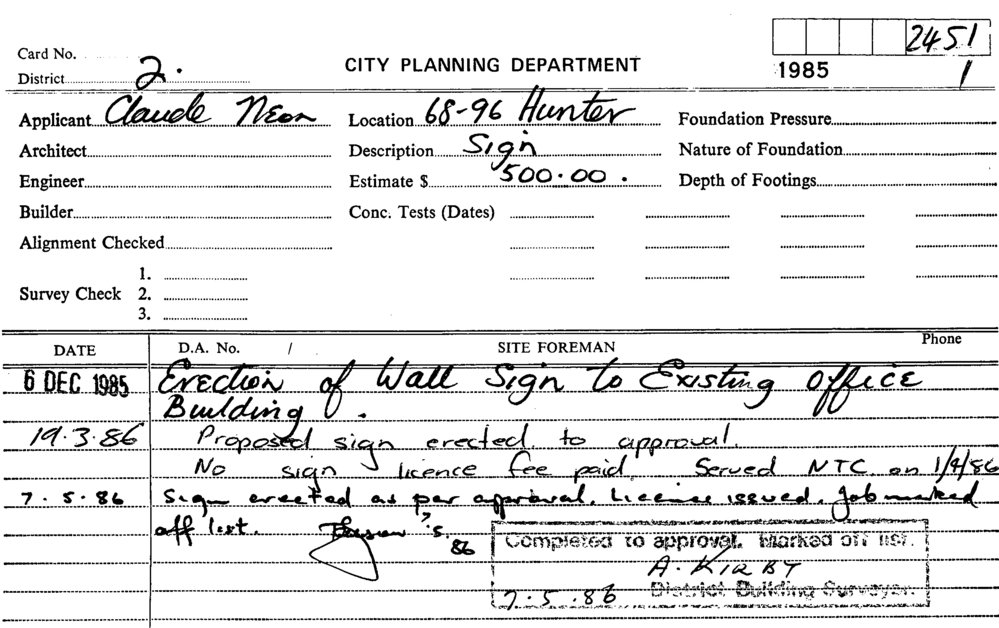 2451
Card No.
District 2.
CITY PLANNING DEPARTMENT
1985 1
Applicant Claude Neon
Location 68-96 Hunter
Foundation Pressure
Architect
Description Sign
Nature of Foundation
Engineer
Estimate $ 500.00.
Depth of Footings
Builder
Conc. Tests (Dates)
Alignment Checked
Survey Check
1.
2.
3.
DATE
D.A. No. /
SITE FOREMAN
Phone
6 DEC 1985 Erection of Wall Sign to Existing Office
Building.
19.3.86 Proposed sign erected to approval.
No sign licence fee paid. Served NTC on 1/4/86
7.5.86 Sign erected as per approval. License issued. Job marked
off list. 7.5.86
Completed to approval. Marked off list.
A. KIRBY
7.5.86 District Building Surveyor.